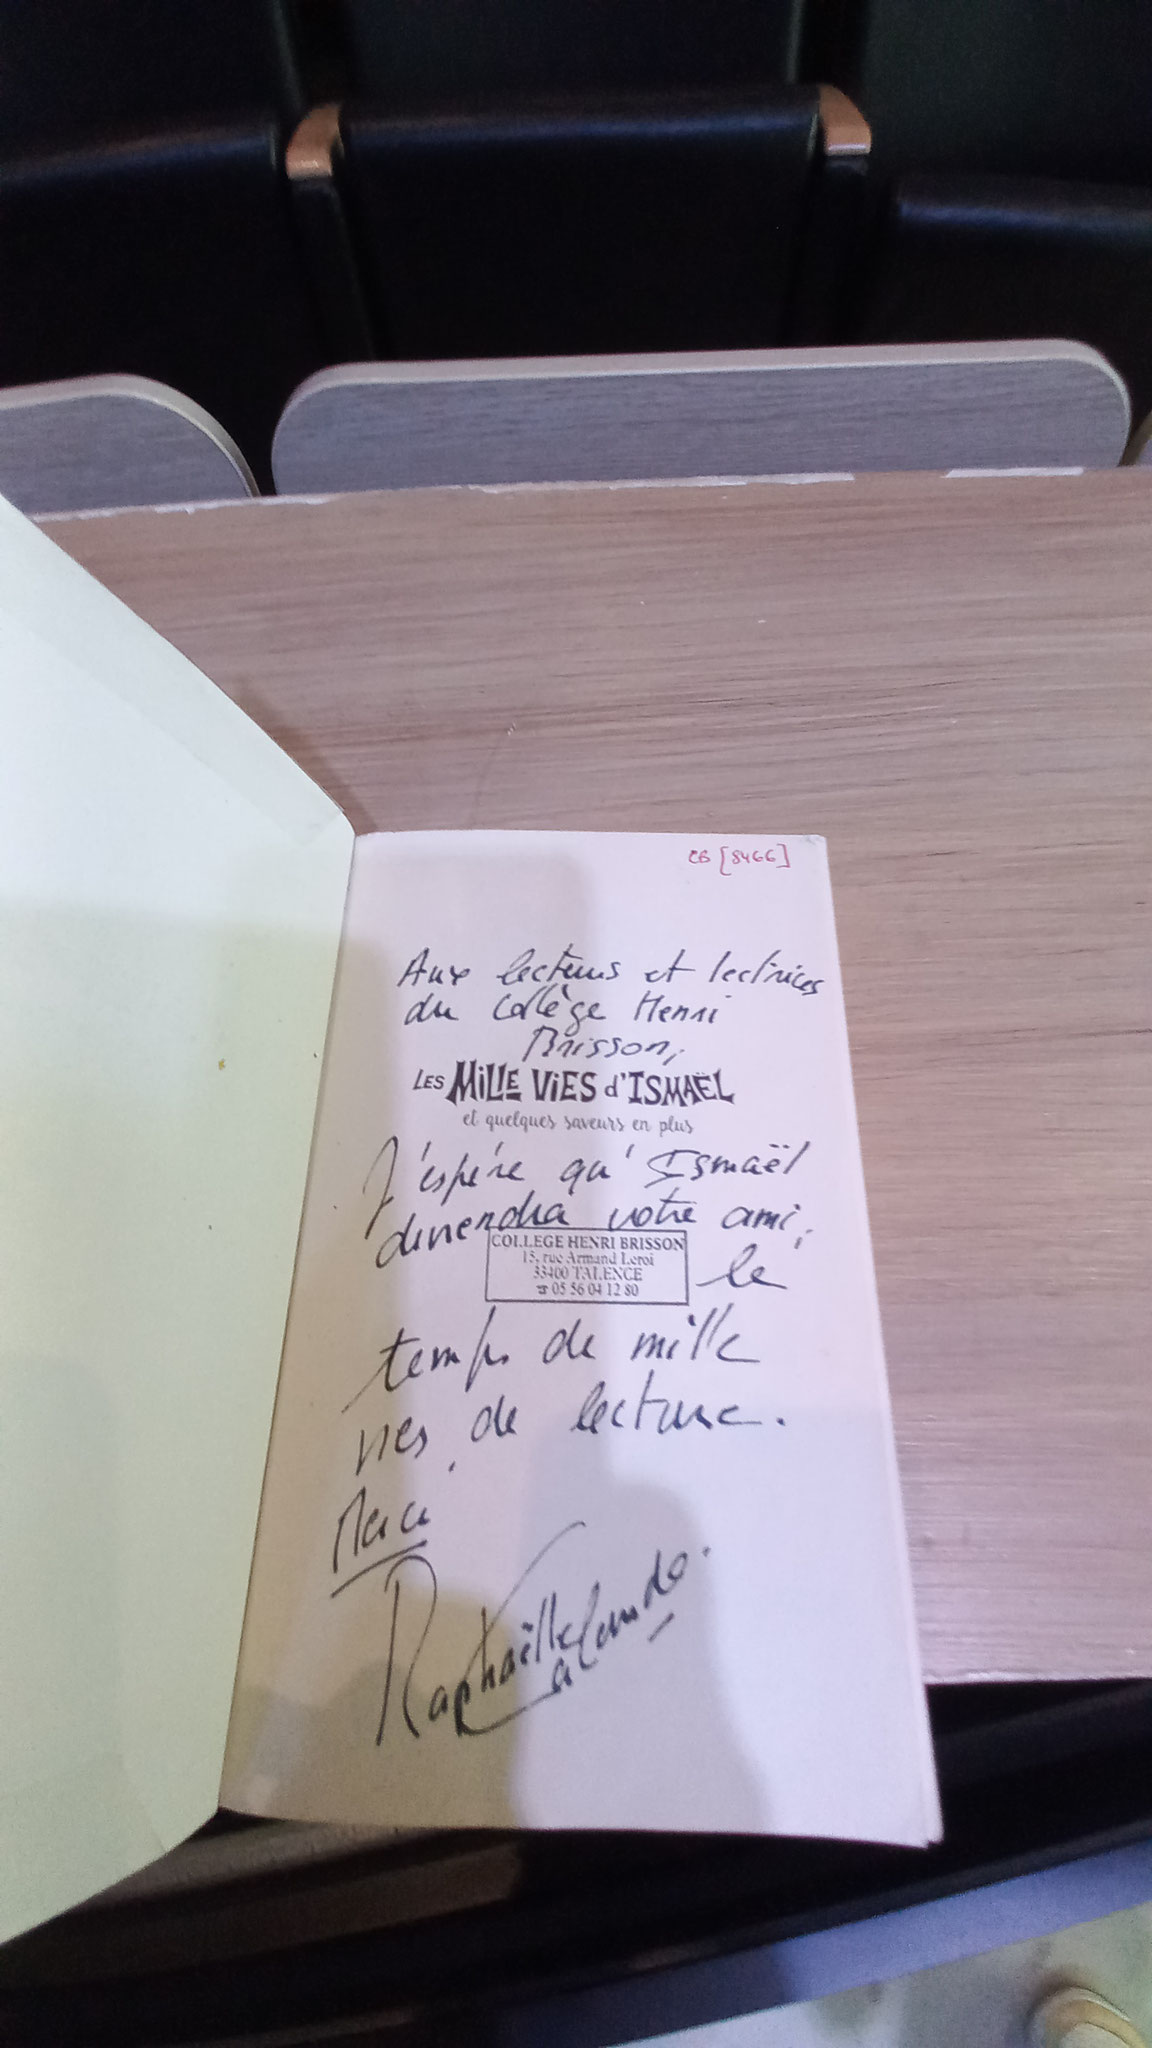 CB [8466]
Aux lecteurs et lectrices
du Collège Henri
Brisson,
LES MILLE VIES d'ISMAËL
et quelques saveurs en plus
J'espère qu'Ismaël
deviendra votre ami,
COLLEGE HENRI BRISSON
15, rue Armand Leroi
33400 TALENCE
☎ 05 56 04 12 80
le
temps de mille
vies de lecture.
Merci
Raphaëlle Calande